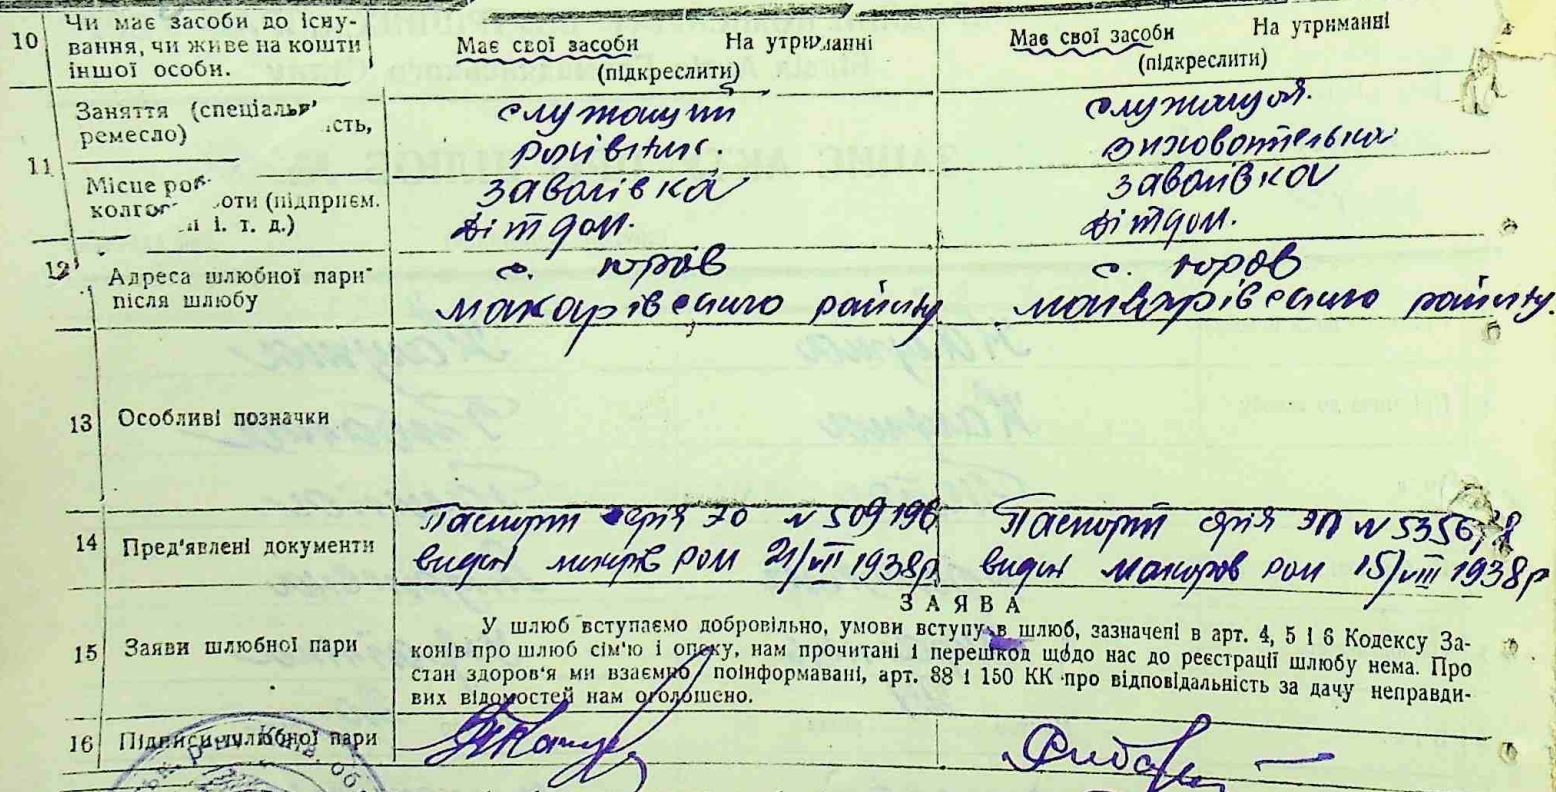 10 Чи має засоби до існу-
вання, чи живе на кошти
іншої особи.
Має свої засоби На утриманні
(підкреслити)
Має свої засоби На утриманні
(підкреслити)
11 Заняття (спеціаль
ість,
ремесло)
служащий
служащая
вихователька
Місце роб
оти (підприєм.
колгос
і. т. д.)
заваlівка
дітдом.
заваlівка
дітдом.
12 Адреса шлюбної пари
після шлюбу
с. Юров
Макарівського району
с. Юров
Макарівського району.
13 Особливі позначки
14 Пред'явлені документи
Паспорт серія 70 N 509196
видан Макарів РОМ 21/VIII 1938р
Паспорт серія ЭП N 5356 8
видан Макаров РОМ 15/VIII 1938р
15 Заяви шлюбної пари
ЗАЯВА
У шлюб вступаємо добровільно, умови вступу в шлюб, зазначені в арт. 4, 5 і 6 Кодексу За-
конів про шлюб сім'ю і опеку, нам прочитані і перешкод щодо нас до реєстрації шлюбу нема. Про
стан здоров'я ми взаємно поінформавані, арт. 88 і 150 КК про відповідальність за дачу неправди-
вих відомостей нам оголошено.
16 Підписи шлюбної пари